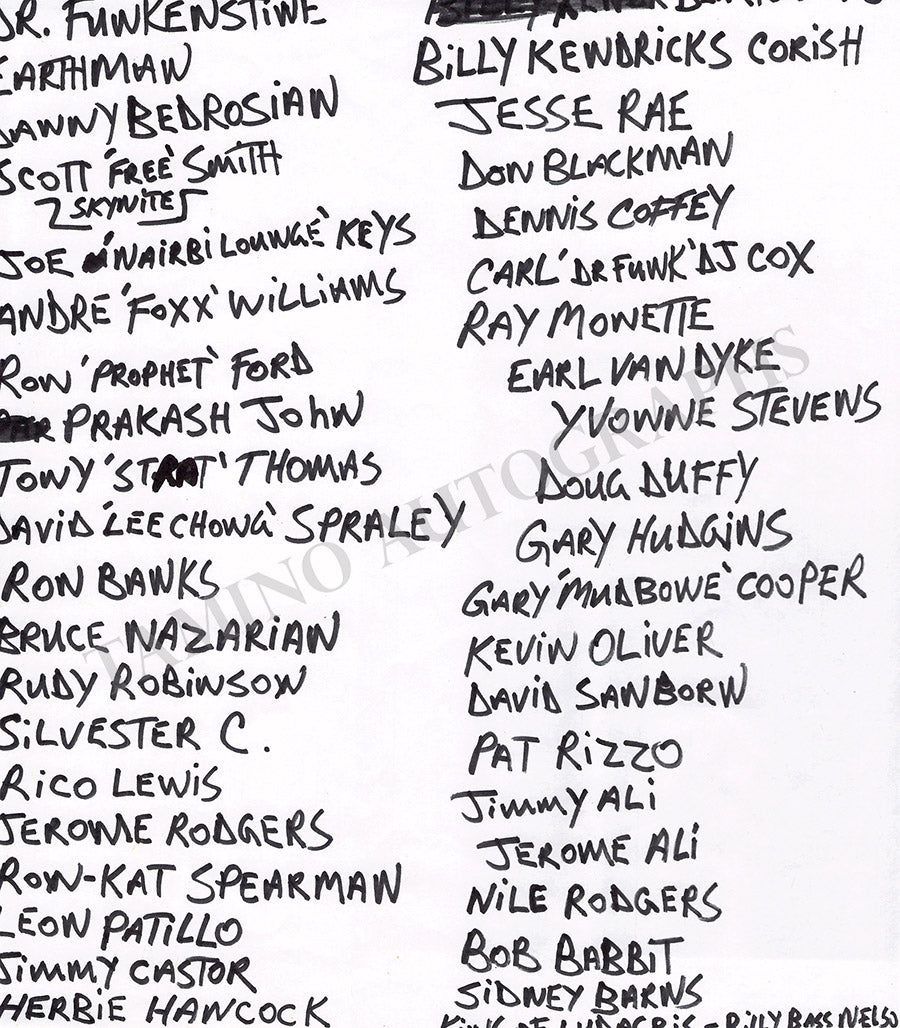 DR. FUNKENSTINE
EARTHMAN
DANNY BEDROSIAN
SCOTT 'FREE' SMITH
SKYNITE
JOE 'NAIRBI LOUNGE' KEYS
ANDRE 'FOXX' WILLIAMS
RON 'PROPHET' FORD
PRAKASH JOHN
TONY 'STRAT' THOMAS
DAVID 'LEECHONG' SPRALEY
RON BANKS
BRUCE NAZARIAN
RUDY ROBINSON
SILVESTER C.
RICO LEWIS
JEROME RODGERS
RON-KAT SPEARMAN
LEON PATILLO
JIMMY CASTOR
HERBIE HANCOCK
BILLY KENDRICKS CORISH
JESSE RAE
DON BLACKMAN
DENNIS COFFEY
CARL 'DR FUNK' DJ COX
RAY MONETTE
EARL VAN DYKE
YVONNE STEVENS
DOUG DUFFY
GARY HUDGINS
GARY 'MUDBONE' COOPER
KEVIN OLIVER
DAVID SANBORN
PAT RIZZO
JIMMY ALI
JEROME ALI
NILE RODGERS
BOB BABBIT
SIDNEY BARNS
KING OF LUDACRIS - BILLY BASS NELSO
TAMINO AUTOGRAPHS